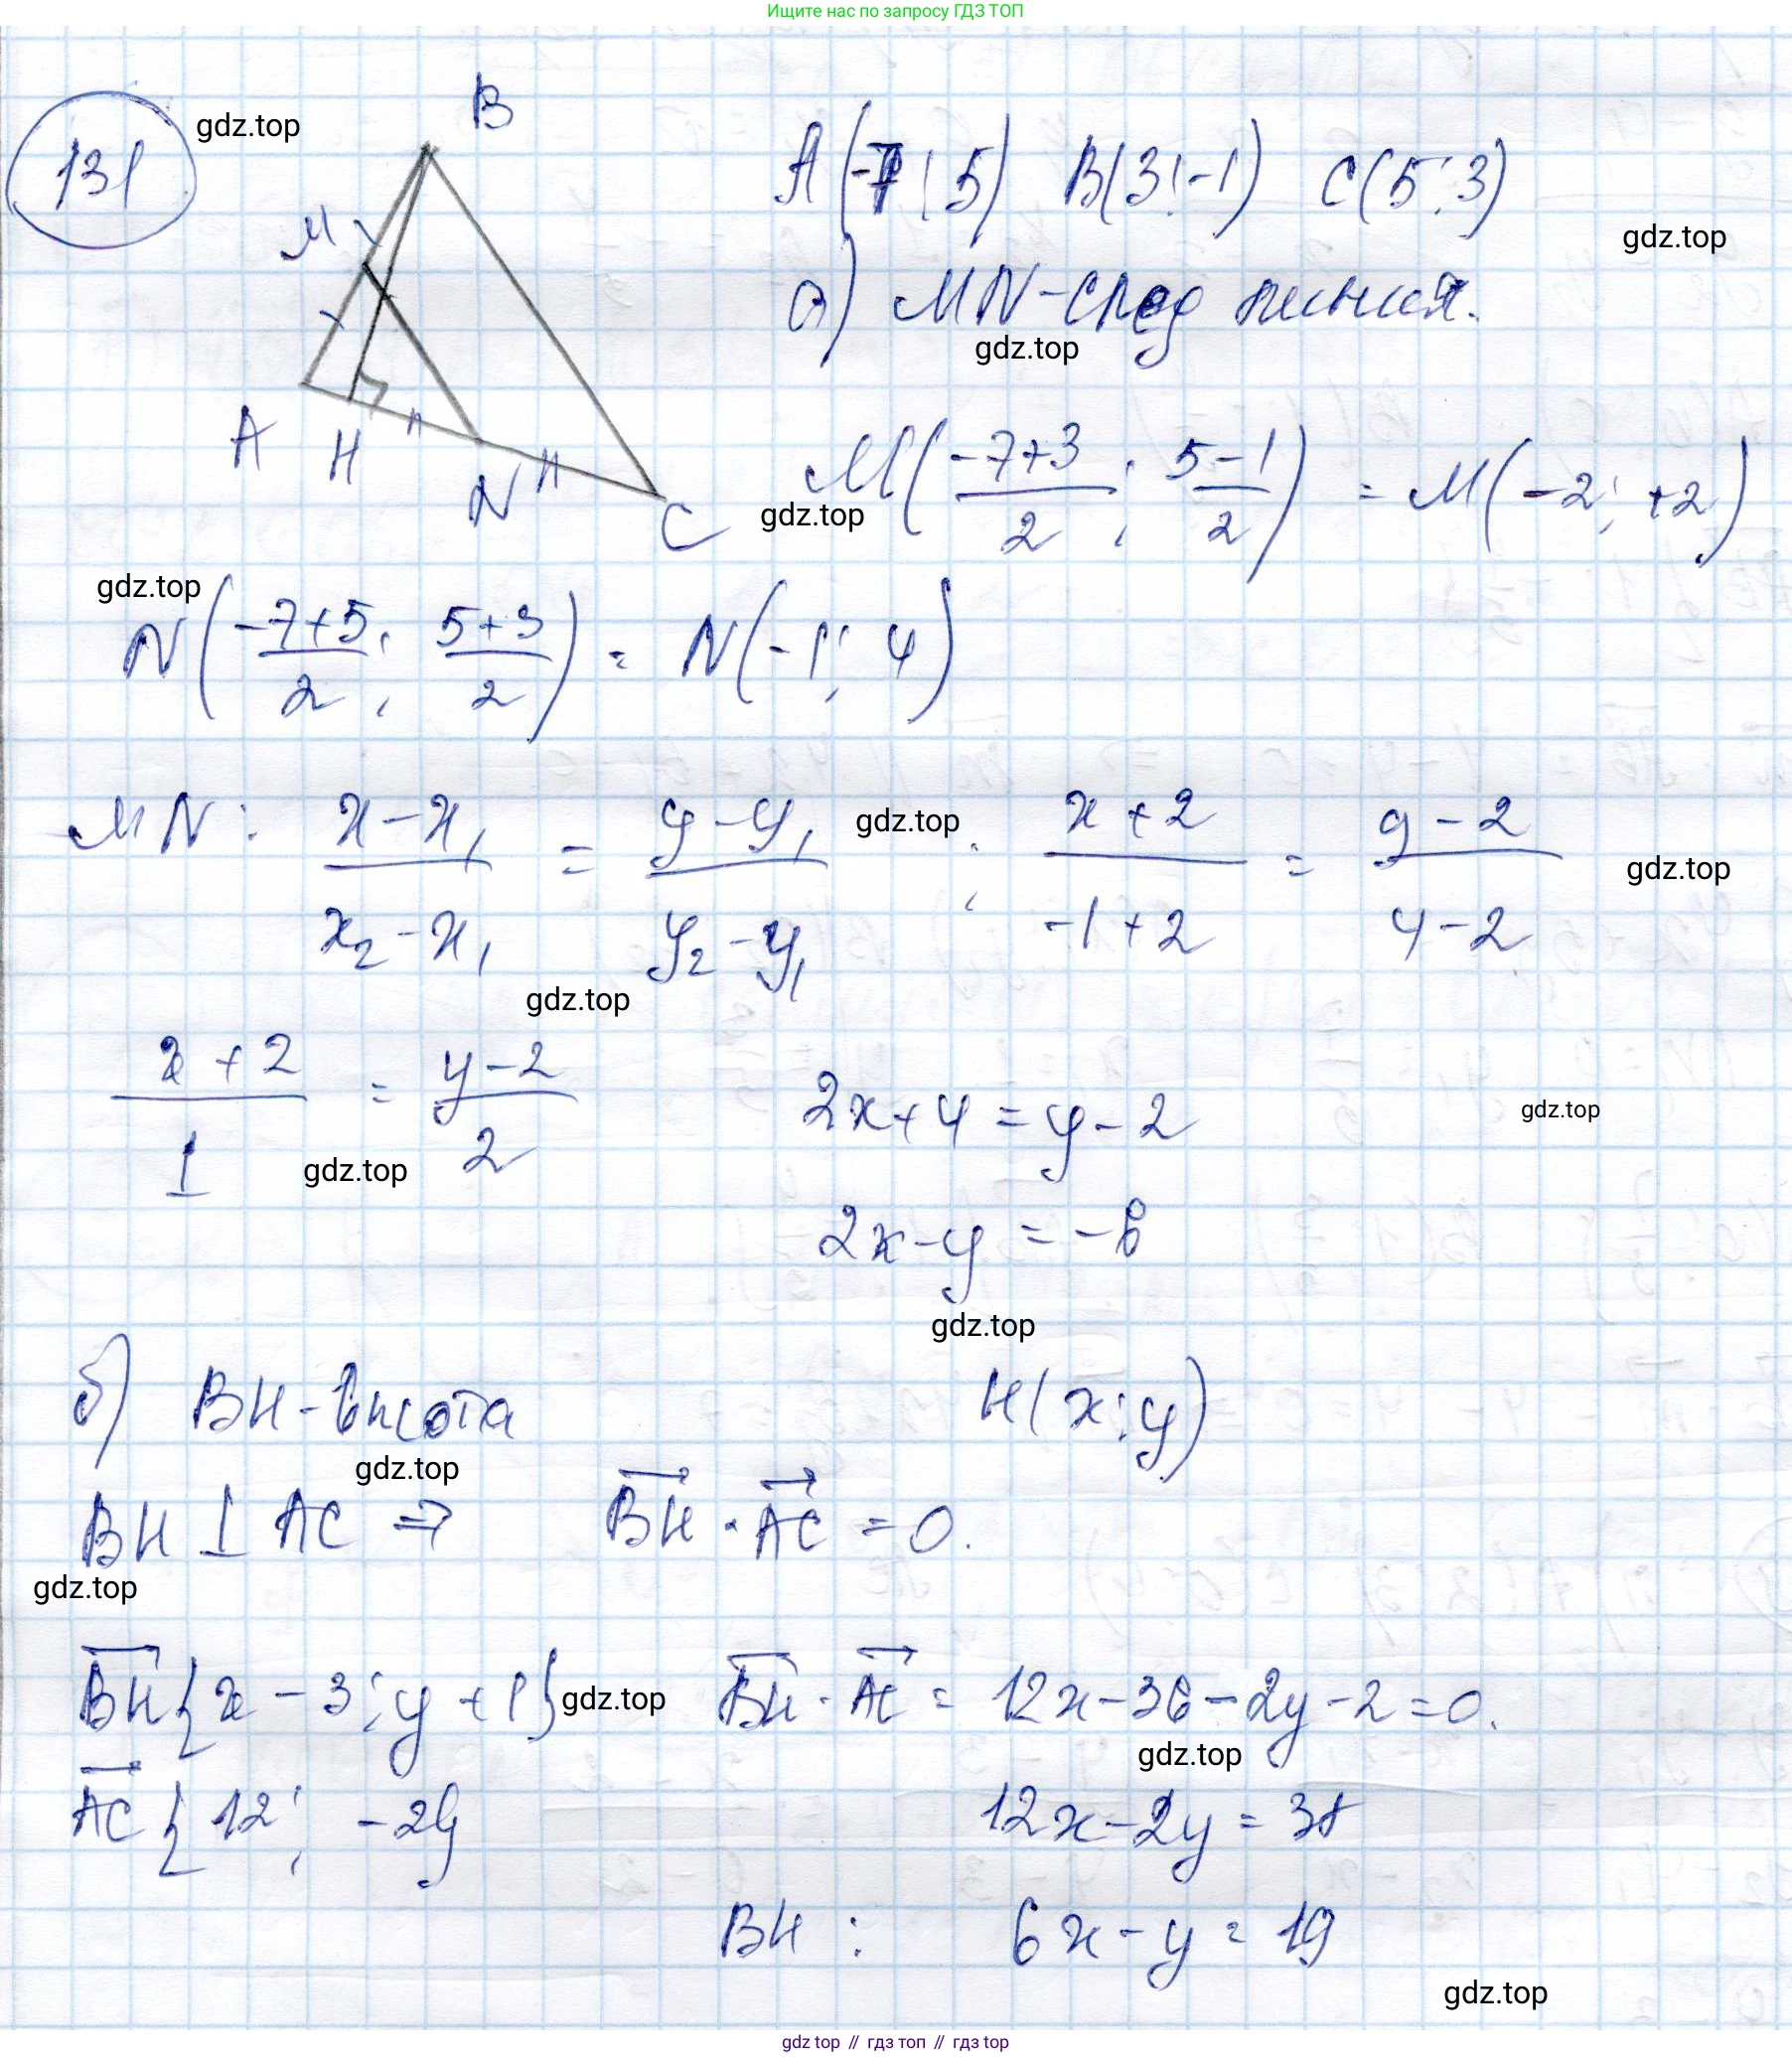 Ищите нас по запросу ГДЗ ТОП
131
gdz.top
B
M
A
H
N
C
A(-7; 5) B(3; -1) C(5; 3)
gdz.top
а) MN - сред линия.
gdz.top
M(\frac{-7+3}{2}; \frac{5-1}{2}) = M(-2; +2)
gdz.top
gdz.top
N(\frac{-7+5}{2}; \frac{5+3}{2}) = N(-1; 4)
MN: \frac{x-x_1}{x_2-x_1} = \frac{y-y_1}{y_2-y_1} gdz.top ; \frac{x+2}{-1+2} = \frac{y-2}{4-2}
gdz.top
gdz.top
\frac{x+2}{1} = \frac{y-2}{2} 2x+4 = y-2
gdz.top
gdz.top
2x-y = -6
gdz.top
б) BH - высота H(x; y)
gdz.top
BH ⊥ AC ⇒ \vec{BH} · \vec{AC} = 0.
gdz.top
\vec{BH}{x-3; y+1} gdz.top \vec{BH} · \vec{AC} = 12x-36-2y-2=0.
gdz.top
\vec{AC}{12; -2} 12x-2y = 38
BH: 6x-y = 19
gdz.top
gdz top // гдз топ // гдз top